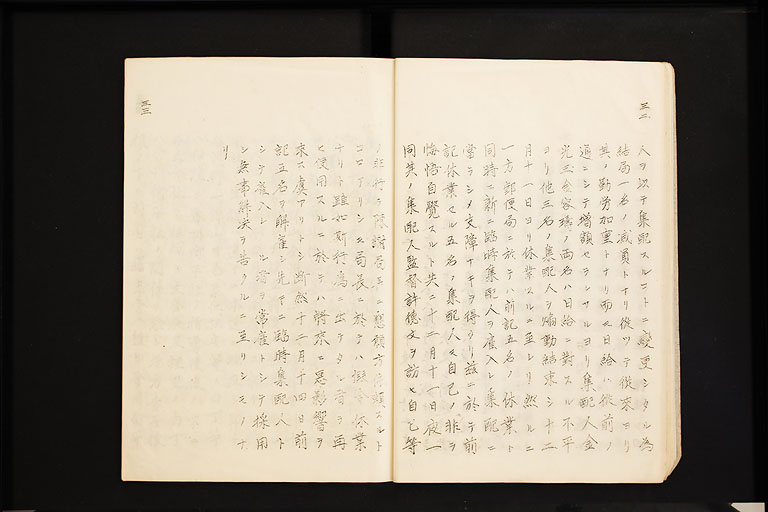 三二
人ヲ以テ集配スルコトニ変更シタル為
結局一名ノ減員トナリ従ツテ従来ヨリ
其ノ勤労加重トナリ而モ日給ハ従前ノ
通ニシテ増額セラレサルヨリ集配人金
光玉金容璘ノ両名ハ日給ニ対スル不平
ヨリ他三名ノ集配人ヲ煽動結束シ十二
月十一日ヨリ休業スルニ至レリ然ルニ
一方郵便局ニ於テハ前記五名ノ休業ト
同時ニ新ニ臨時集配人ヲ雇入レ集配ニ
当ラシメ支障ナキヲ得タリ茲ニ於テ前
記休業セル五名ノ集配人モ自己ノ非ヲ
悔悟自覚スルト共ニ十二月十一日夜一
同其ノ集配人監督許徳文ヲ訪ヒ自己等
三三
ノ非行ヲ陳謝局長ニ懇願方依頼スルト
コロアリシモ局長ニ於テハ仮令休業
ナリト雖如斯行為ニ出テタル者ヲ再
ヒ使用スルニ於テハ将来ニ悪影響ヲ
来ス虞アリトシ断然十二月十四日前
記五名ヲ解雇シ先キニ臨時集配人ト
シテ雇入レ 者ヲ常雇トシテ採用
シ無事解決ヲ告クルニ至リシモノナ
リ